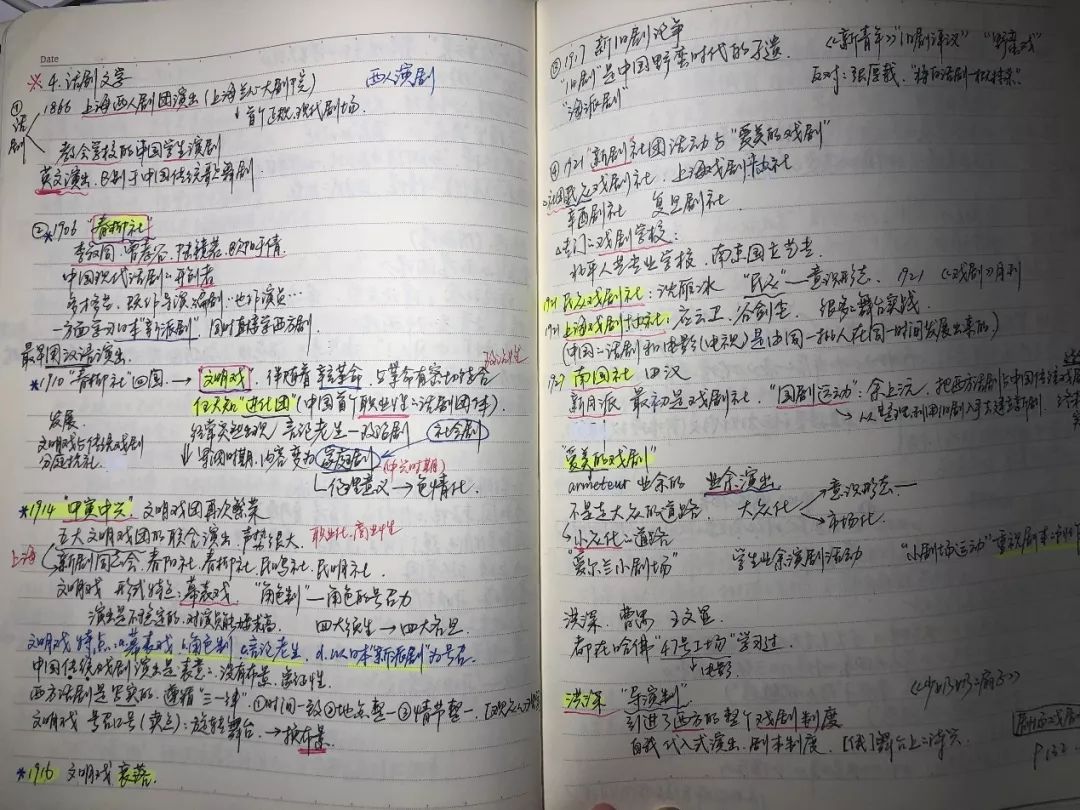 Date
※ 4. 话剧文学 西人演剧
① 话剧 1866 上海西人剧团演出（上海兰心大剧院）
↓首个正规、现代剧场.
教会学校的中国学生演剧
英文演出、区别于中国传统歌舞剧.
②*1906 "春柳社"
李叔同、曾孝谷、陆镜若、欧阳予倩.
中国现代话剧开创者
一方面学习日本"新派剧", 同时直接学西方剧.
最早国汉语演出.
*1910 "春柳社"回国. → "文明戏". 伴随着辛亥革命. 与革命有密切结合
任天知"进化团"(中国首个职业化话剧团体).
发展.
经常突出出现 言论老生
社会剧
文明戏与传统戏剧
分庭抗礼.
内容变为 家庭剧
(中兴时期)
伦理意义 → 色情化.
*1914 "甲寅中兴" 文明戏团再次繁荣
五大文明戏团的联合演出, 声势很大. 职业化、商业性
上海 新剧同志会、春阳社、春柳社、民鸣社、民明社.
文明戏 形式特色: 幕表戏. "角色制"—角色的号召力
演出是不稳定的. 对演员能力要求高. 四大须生 → 四大名旦.
文明戏 特点: 幕表戏 角色制 言论老生 以日本"新派剧"为号召.
中国传统戏剧演出是表意. 没有布景. 象征性.
西方话剧是写实的. 遵循"三一律". ①时间一致②地点整一③情节整一.
文明戏 号召口号(卖点): 旋转舞台. → 换布景
*1916 文明戏 衰落.
③ 1917 新旧剧论争 《新青年》"旧剧评议" "野蛮戏"
"旧剧"是中国野蛮时代的孑遗 反对: 张厚载.
"海派剧"
④ 1921 "新剧社团活动与"爱美的戏剧"
社团 民众戏剧社、上海戏剧协社
辛酉剧社 复旦剧社
专门戏剧学校:
北平人艺专业学校、南京国立艺专
1921 民众戏剧社: 沈雁冰 "民众"—意识形态. 1921 《戏剧》月刊
1921 上海戏剧协社: 应云卫、谷剑尘 很多舞台实践.
(中国话剧和电影(电视)是由同一批人在同一时间发展出来的)
1927 南国社 田汉
新月派 最初是戏剧社. "国剧运动": 余上沅. 把西方话剧与中国传统戏剧
"爱美的戏剧"
armeteur 业余的 业余演出
不是走大众的道路. 大众化 意识形态一
市场化.
小众化道路
"爱尔兰小剧场" 学生业余演剧活动 "小剧场运动"重视剧本创作
洪深 曹禺 王文显
都在哈佛"47号工场"学习过.
↓电影
洪深 "导演制" 《少奶奶的扇子》
引进了西方的整个戏剧制度
自我代入式演出. 剧本制度. [俄]
P132.